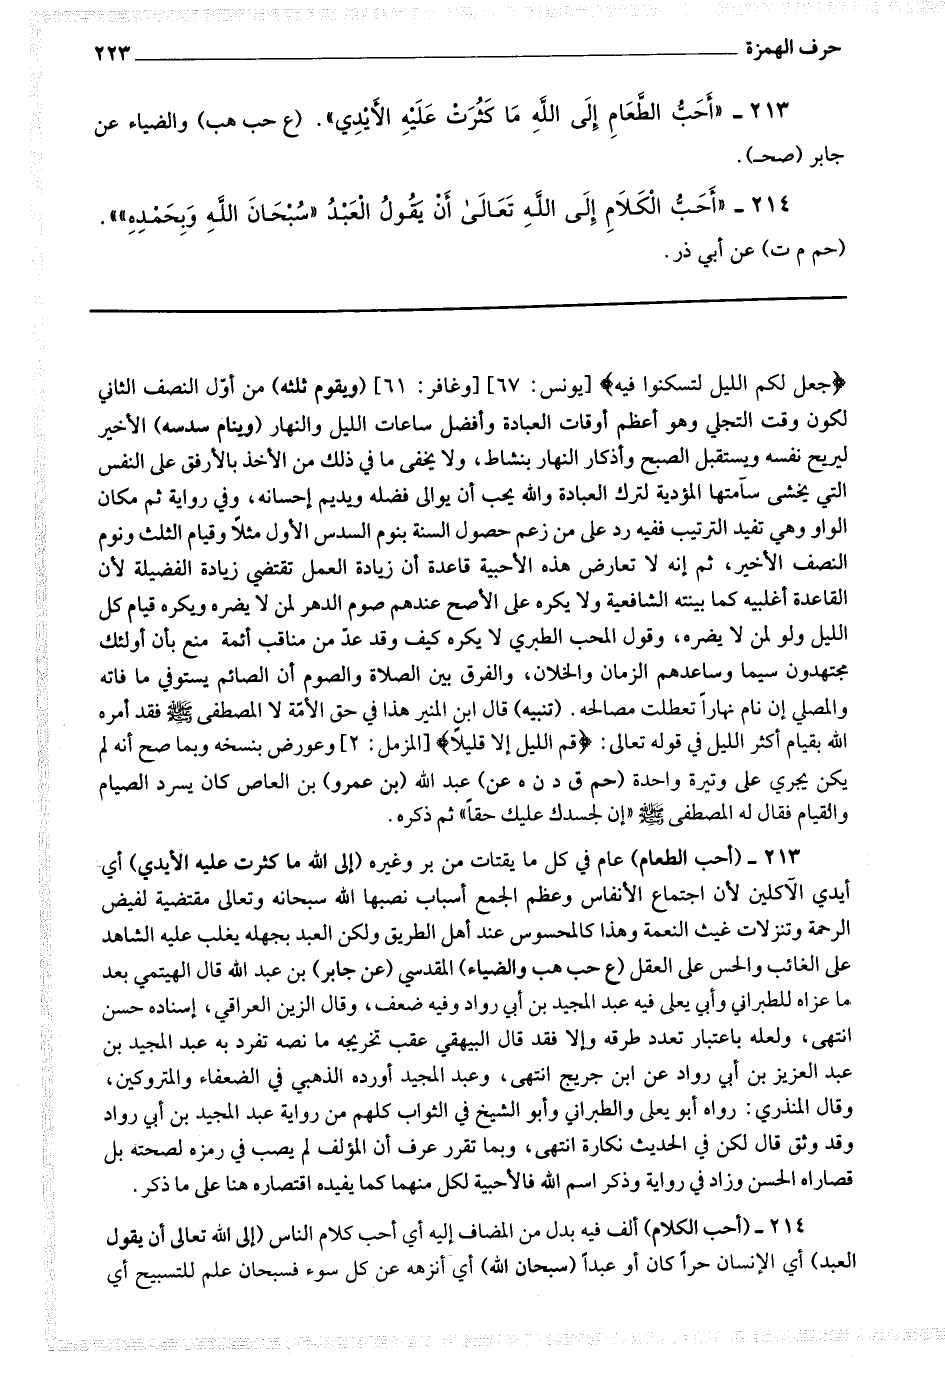 حرف الهمزة ــــــــــــــــــــــــــــــــــــــــ ٢٢٣
٢١٣ ـ «أَحَبُّ الطَّعَامِ إِلَى اللَّهِ مَا كَثُرَتْ عَلَيْهِ الأَيْدِي». (ع حب هب) والضياء عن
جابر (صحـ).
٢١٤ ـ «أَحَبُّ الْكَلَامِ إِلَى اللَّهِ تَعَالَىٰ أَنْ يَقُولُ الْعَبْدُ «سُبْحَانَ اللَّهِ وَبِحَمْدِهِ»».
(حم م ت) عن أبي ذر.
﴿جعل لكم الليل لتسكنوا فيه﴾ [يونس: ٦٧] [وغافر: ٦١] (ويقوم ثلثه) من أوّل النصف الثاني
لكون وقت التجلي وهو أعظم أوقات العبادة وأفضل ساعات الليل والنهار (وينام سدسه) الأخير
ليريح نفسه ويستقبل الصبح وأذكار النهار بنشاط، ولا يخفى ما في ذلك من الأخذ بالأرفق على النفس
التي يخشى سآمتها المؤدية لترك العبادة والله يحب أن يوالى فضله ويديم إحسانه، وفي رواية ثم مكان
الواو وهي تفيد الترتيب ففيه رد على من زعم حصول السنة بنوم السدس الأول مثلاً وقيام الثلث ونوم
النصف الأخير، ثم إنه لا تعارض هذه الأحبية قاعدة أن زيادة العمل تقتضي زيادة الفضيلة لأن
القاعدة أغلبيه كما بينته الشافعية ولا يكره على الأصح عندهم صوم الدهر لمن لا يضره ويكره قيام كل
الليل ولو لمن لا يضره، وقول المحب الطبري لا يكره كيف وقد عدّ من مناقب أئمة منع بأن أولئك
مجتهدون سيما وساعدهم الزمان والخلان، والفرق بين الصلاة والصوم أن الصائم يستوفي ما فاته
والمصلي إن نام نهاراً تعطلت مصالحه. (تنبيه) قال ابن المنير هذا في حق الأمّة لا المصطفى ﷺ فقد أمره
الله بقيام أكثر الليل في قوله تعالى: ﴿قم الليل إلا قليلاً﴾ [المزمل: ٢] وعورض بنسخه وبما صح أنه لم
يكن يجري على وتيرة واحدة (حم ق د ن ه عن) عبد الله (بن عمرو) بن العاص كان يسرد الصيام
والقيام فقال له المصطفى ﷺ «إن لجسدك عليك حقاً» ثم ذكره.
٢١٣ ـ (أحب الطعام) عام في كل ما يقتات من بر وغيره (إلى الله ما كثرت عليه الأيدي) أي
أيدي الآكلين لأن اجتماع الأنفاس وعظم الجمع أسباب نصبها الله سبحانه وتعالى مقتضية لفيض
الرحمة وتنزلات غيث النعمة وهذا كالمحسوس عند أهل الطريق ولكن العبد بجهله يغلب عليه الشاهد
على الغائب والحس على العقل (ع حب هب والضياء) المقدسي (عن جابر) بن عبد الله قال الهيتمي بعد
ما عزاه للطبراني وأبي يعلى فيه عبد المجيد بن أبي رواد وفيه ضعف، وقال الزين العراقي، إسناده حسن
انتهى، ولعله باعتبار تعدد طرقه وإلا فقد قال البيهقي عقب تخريجه ما نصه تفرد به عبد المجيد بن
عبد العزيز بن أبي رواد عن ابن جريج انتهى، وعبد المجيد أورده الذهبي في الضعفاء والمتروكين،
وقال المنذري: رواه أبو يعلى والطبراني وأبو الشيخ في الثواب كلهم من رواية عبد المجيد بن أبي رواد
وقد وثق قال لكن في الحديث نكارة انتهى، وبما تقرر عرف أن المؤلف لم يصب في رمزه لصحته بل
قصاراه الحسن وزاد في رواية وذكر اسم الله فالأحبية لكل منهما كما يفيده اقتصاره هنا على ما ذكر.
٢١٤ ـ (أحب الكلام) ألف فيه بدل من المضاف إليه أي أحب كلام الناس (إلى الله تعالى أن يقول
العبد) أي الإنسان حراً كان أو عبداً (سبحان الله) أي أنزهه عن كل سوء فسبحان علم للتسبيح أي